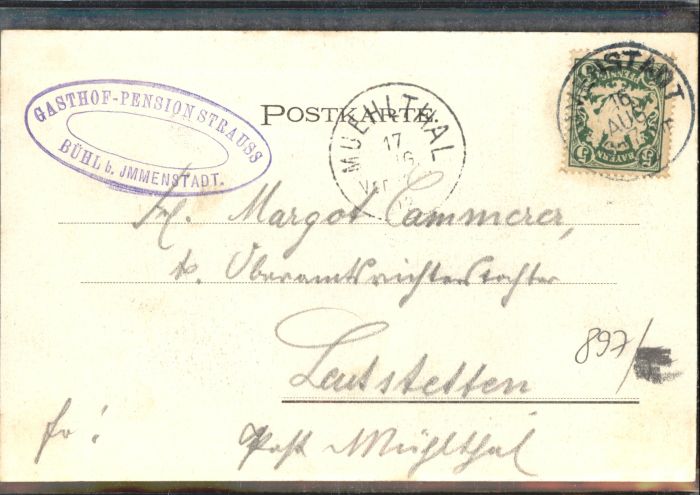 GASTHOF-PENSION STRAUSS
BÜHL b. JMMENSTADT.
POSTKARTE.
MUEHLTHAL
17
Vor
16
AUG
BAYERN
5
Frl. Margot Cammerer,
k. Oberamtsrichterstochter
Leutstetten
897/
fr!
Post Mühlthal